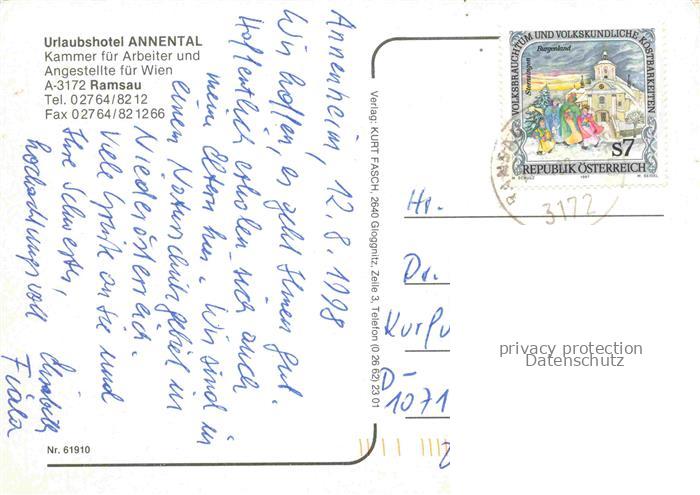 Urlaubshotel ANNENTAL
Kammer für Arbeiter und
Angestellte für Wien
A-3172 Ramsau
Tel. 02764/8212
Fax 02764/821266
Annenheim, 12.8.1998
Wir hoffen, es geht Ihnen gut.
Hoffentlich erholen sich auch
meine Eltern hier. Wir sind in
einem Naturschutzgebiet in
Niederösterreich.
Viele Grüße an Sie und
Ihre Schwester,
hochachtungsvoll
Elisabeth
Fiala
Nr. 61910
Verlag: KURT FASCH, 2640 Gloggnitz, Zeile 3, Telefon (0 26 62) 23 01
VOLKSBRAUCHTUM UND VOLKSKUNDLICHE KOSTBARKEITEN
Burgenland
Sternsingen
S7
REPUBLIK ÖSTERREICH
1997
RAMSAU
3172
Hr.
Dr.
Kurfü
D-
1071
privacy protection
Datenschutz